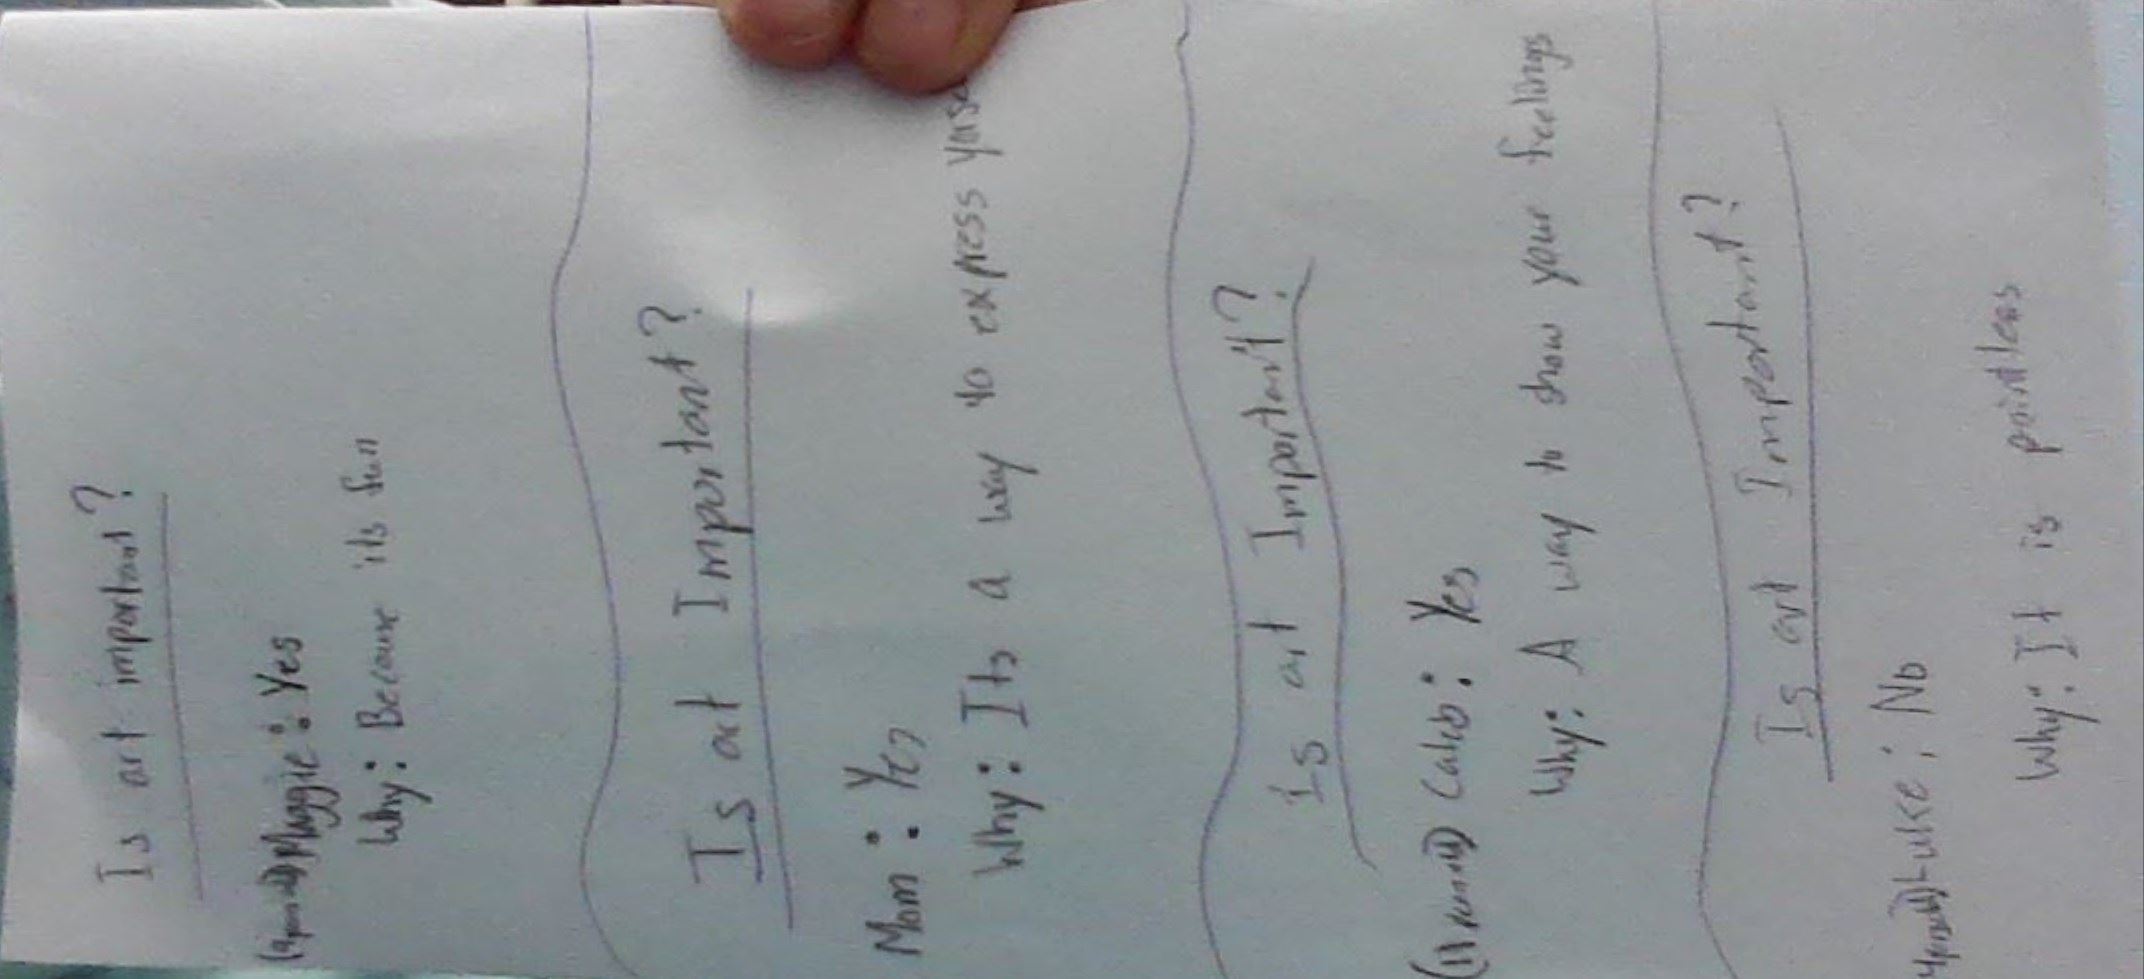 Is art important?
(9 years old) Maggie: Yes
Why: Because its fun
Is art Important?
Mom: Yes
Why: Its a way to express
Is art Important?
(11 years old) Caleb: Yes
Why: A way to show your feelings
Is art Important?
Luke: No
Why: It is pointless